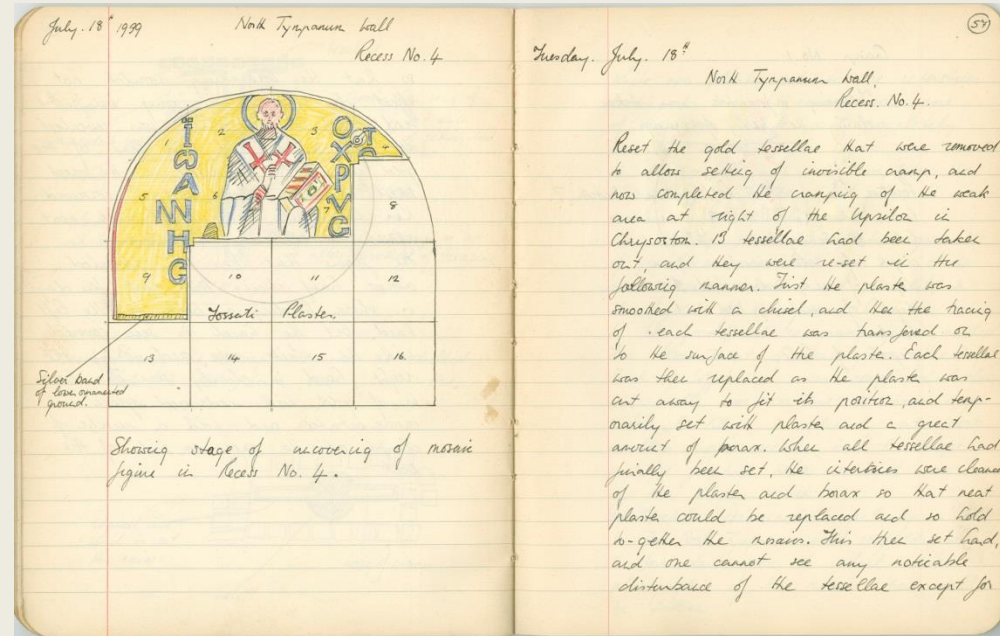 July. 18th 1939
North Tympanum Wall
Recess No. 4
ΪѠΑΝΝΗС
ΟΧΡΥС
ΤΟ
1
2
3
4
5
6
7
8
9
10
11
12
Fossati Plaster.
13
14
15
16
Silver band
of lower ornamented
ground.
Showing stage of uncovering of mosaic
figure in Recess No. 4.
Tuesday. July. 18th
North Tympanum Wall.
Recess. No. 4.
Reset the gold tessellae that were removed
to allow setting of invisible cramp, and
now completed the cramping of the weak
area at right of the Upsilon in
Chrysostom. 13 tessellae had been taken
out, and they were re-set in the
following manner. First the plaster was
smoothed with a chisel, and then the tracing
of each tessellae was transfered on
to the surface of the plaster. Each tessellae
was then replaced as the plaster was
cut away to fit its position, and temp-
orarily set with plaster and a great
amount of borax. When all tessellae had
finally been set, the interstices were cleaned
of the plaster and borax so that neat
plaster could be replaced and so hold
to-gether the mosaics. This then set hard,
and one cannot see any noticable
disturbance of the tessellae except for